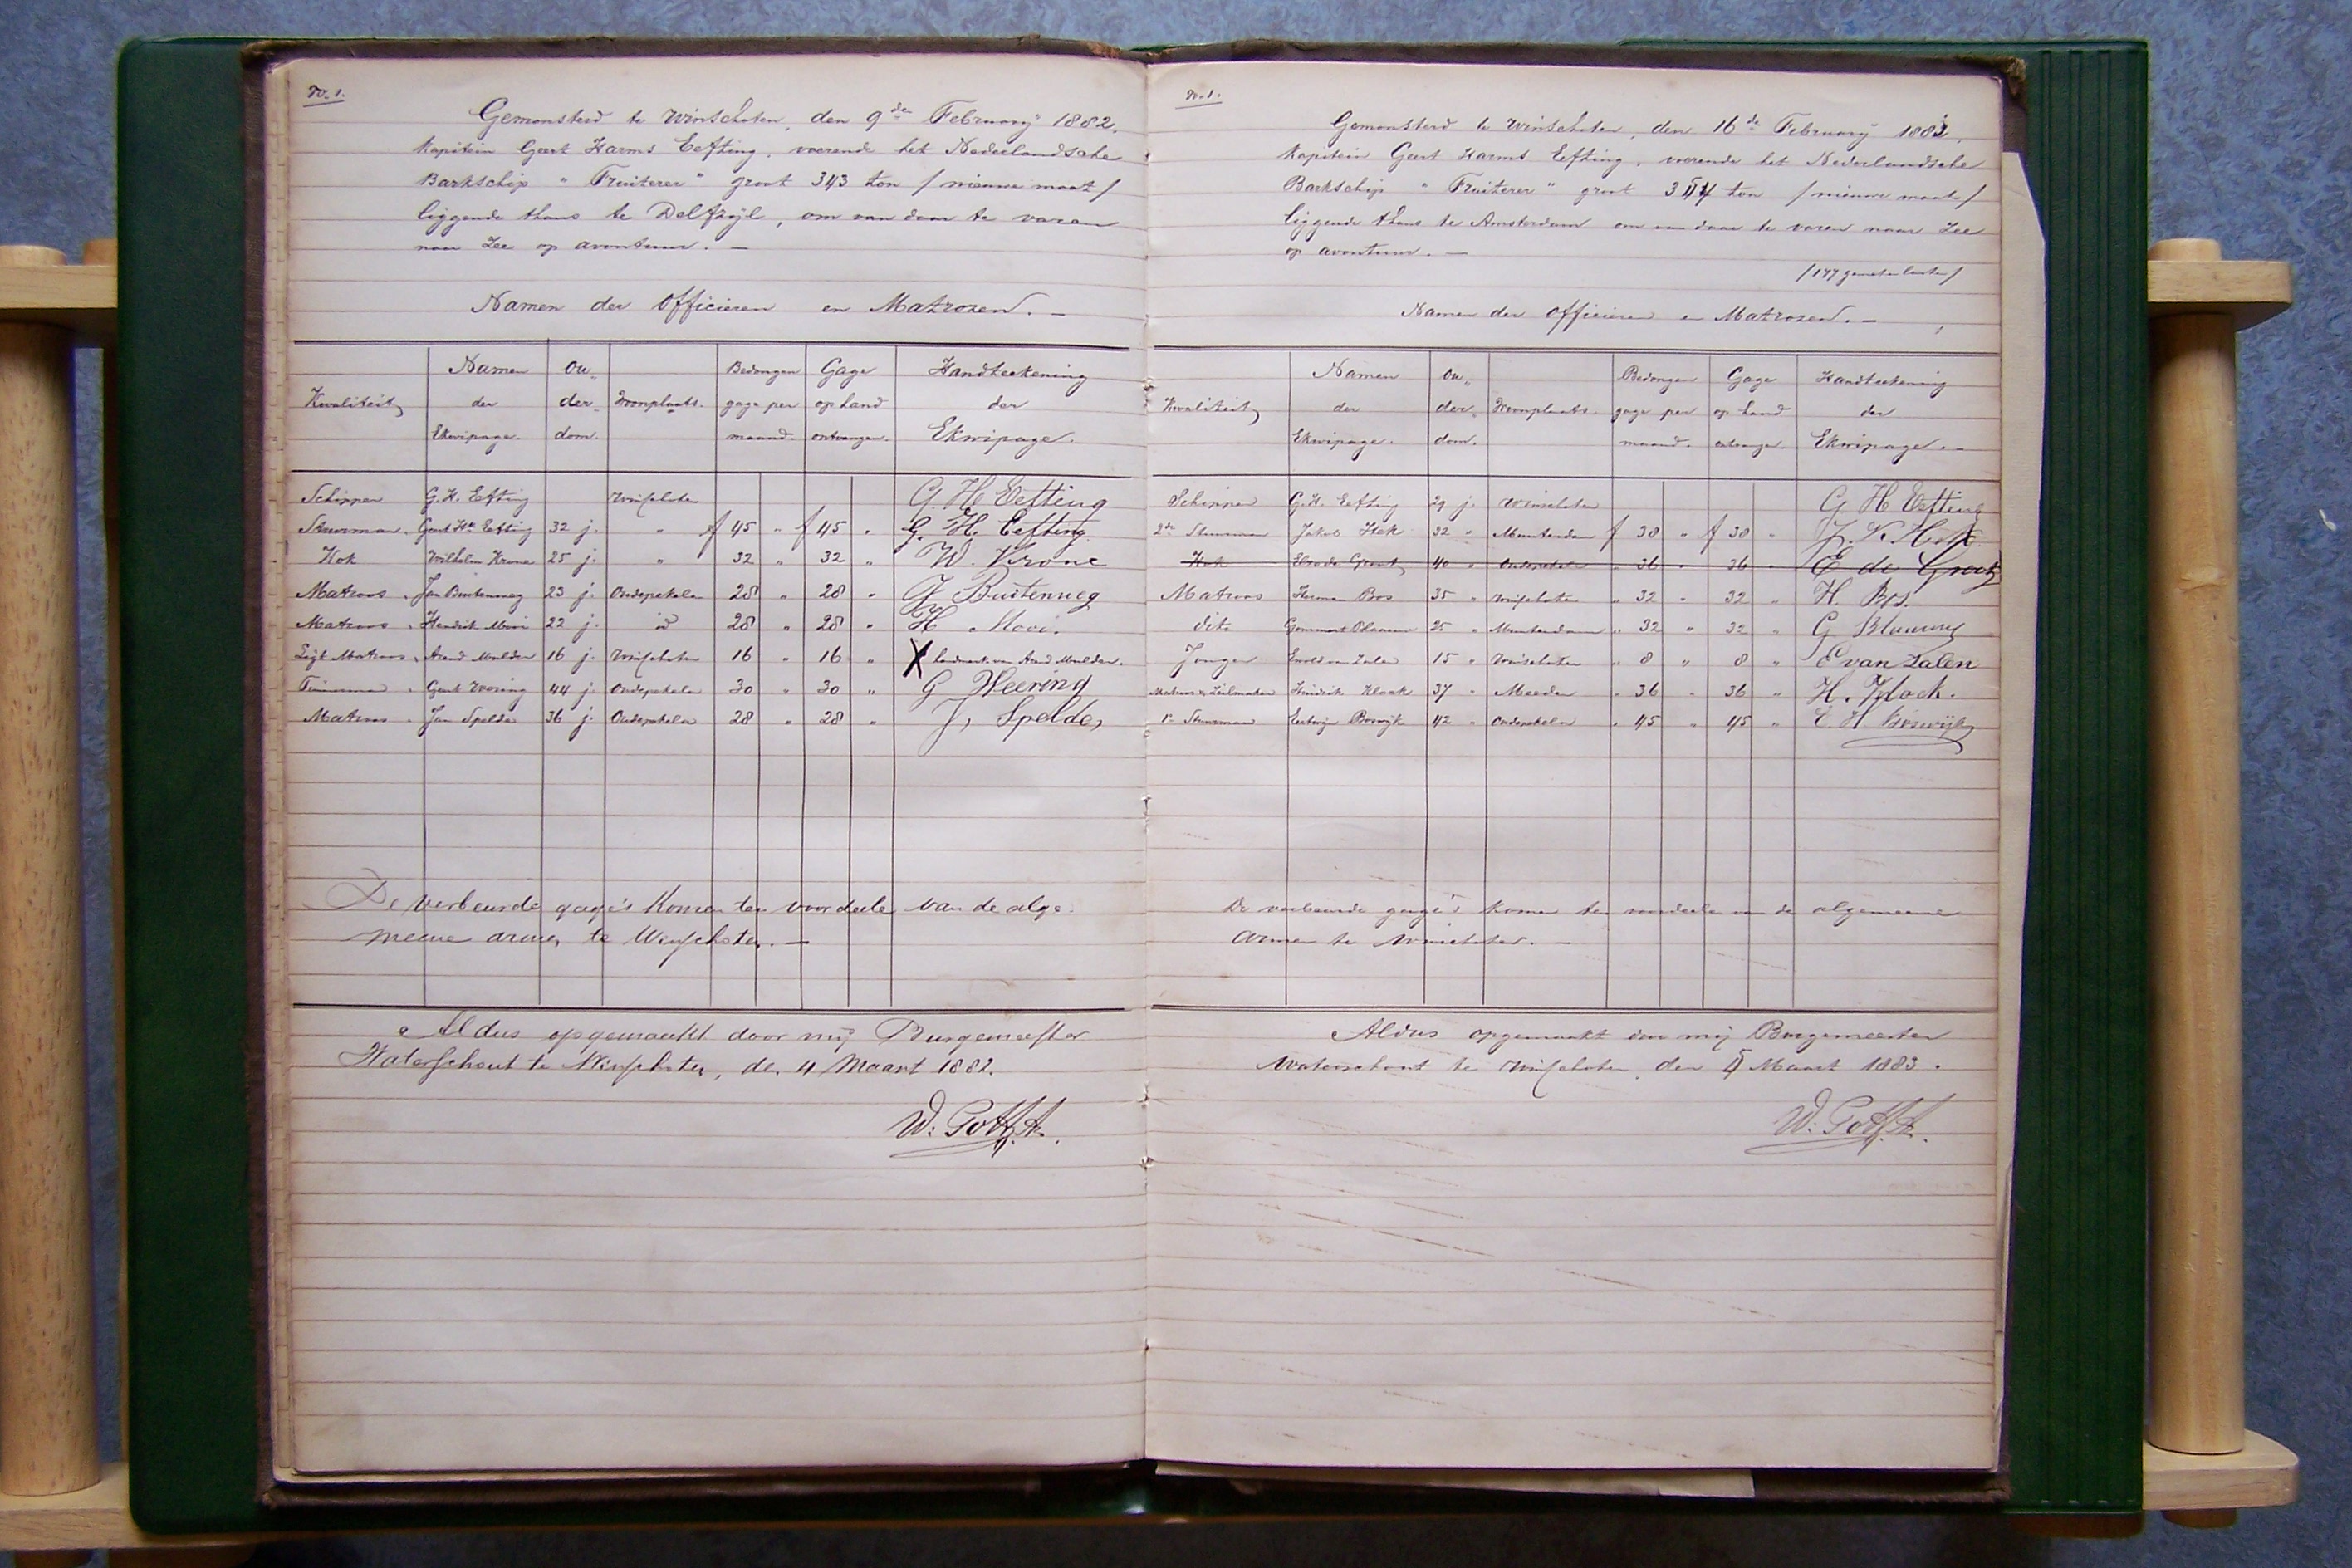 No. 1.
Gemonsterd te Winschoten, den 9de February 1882,
Kapitein Geert Harms Eefting, voerende het Nederlandsche
Barkschip "Fruiterer" groot 343 ton /nieuwe maat/
liggende thans te Delfzijl, om van daar te varen
naar Zee op avontuur. —
Namen der Officieren en Matrozen. —
Kwaliteit Namen der Ekwipage. Ou-der-dom. Woonplaats. Bedongen gage per maand. Gage op hand ontvangen. Handteekening der Ekwipage.
Schipper G. H. Eefting Winschoten G. H. Eefting
Stuurman Geert Hs Eefting 32 j. " f 45 " f 45 " G. H. Eefting
Kok Wilhelm Krone 25 j. " 32 " 32 " W. Krone
Matroos Jan Buitenweg 23 j. Oudepekela 28 " 28 " J Buitenweg
Matroos Hendrik Mooi 22 j. id 28 " 28 " H Mooi.
Ligt Matroos Arend Mulder 16 j. Winschoten 16 " 16 " X handmerk van Arend Mulder.
Timmerman Geert 44 j. Oudepekela 30 " 30 " G Heering
Matroos Jan Spelde 36 j. Oudepekela 28 " 28 " J, Spelde,
De verbeurde gage's komen ten voordeele van de alge-
meene armen te Winschoten. —
Aldus opgemaakt door mij Burgemeester
Waterschout te Winschoten, de. 4 Maart 1882.
No. 1.
Gemonsterd te Winschoten, den 16de February 1883,
Kapitein Geert Harms Eefting, voerende het Nederlandsche
Barkschip "Fruiterer" groot ton /nieuwe maat/
liggende thans te Amsterdam om van daar te varen naar Zee
op avontuur. —
Namen der Officieren en Matrozen. —
Kwaliteit Namen der Ekwipage. Ou-der-dom. Woonplaats. Bedongen gage per maand. Gage op hand ontvangen. Handteekening der Ekwipage. —
Schipper G. H. Eefting 29 j. Winschoten G H Eefting
2de Stuurman Jakob Hek 32 " Muntendam f 38 " f 38 " J. K. Hek
Kok de Groot 40 " Oudepekela " 36 " 36 " E de Groot
Matroos Herman Bos 35 " Winschoten " 32 " 32 " H. Bos.
dito 25 " Muntendam " 32 " 32 " G
Jongen Evert van Zalen 15 " Winschoten " 8 " 8 " E van Zalen
Matroos & Zeilmaker Hindrik Klock 37 " Meeden " 36 " 36 " H. Klock.
1e Stuurman Boswijk 42 " Oudepekela " 45 " 45 " E. H Boswijk
De verbeurde gage's komen ten voordeele van de algemeene
armen te Winschoten. —
Aldus opgemaakt door mij Burgemeester
Waterschout te Winschoten, den Maart 1883.